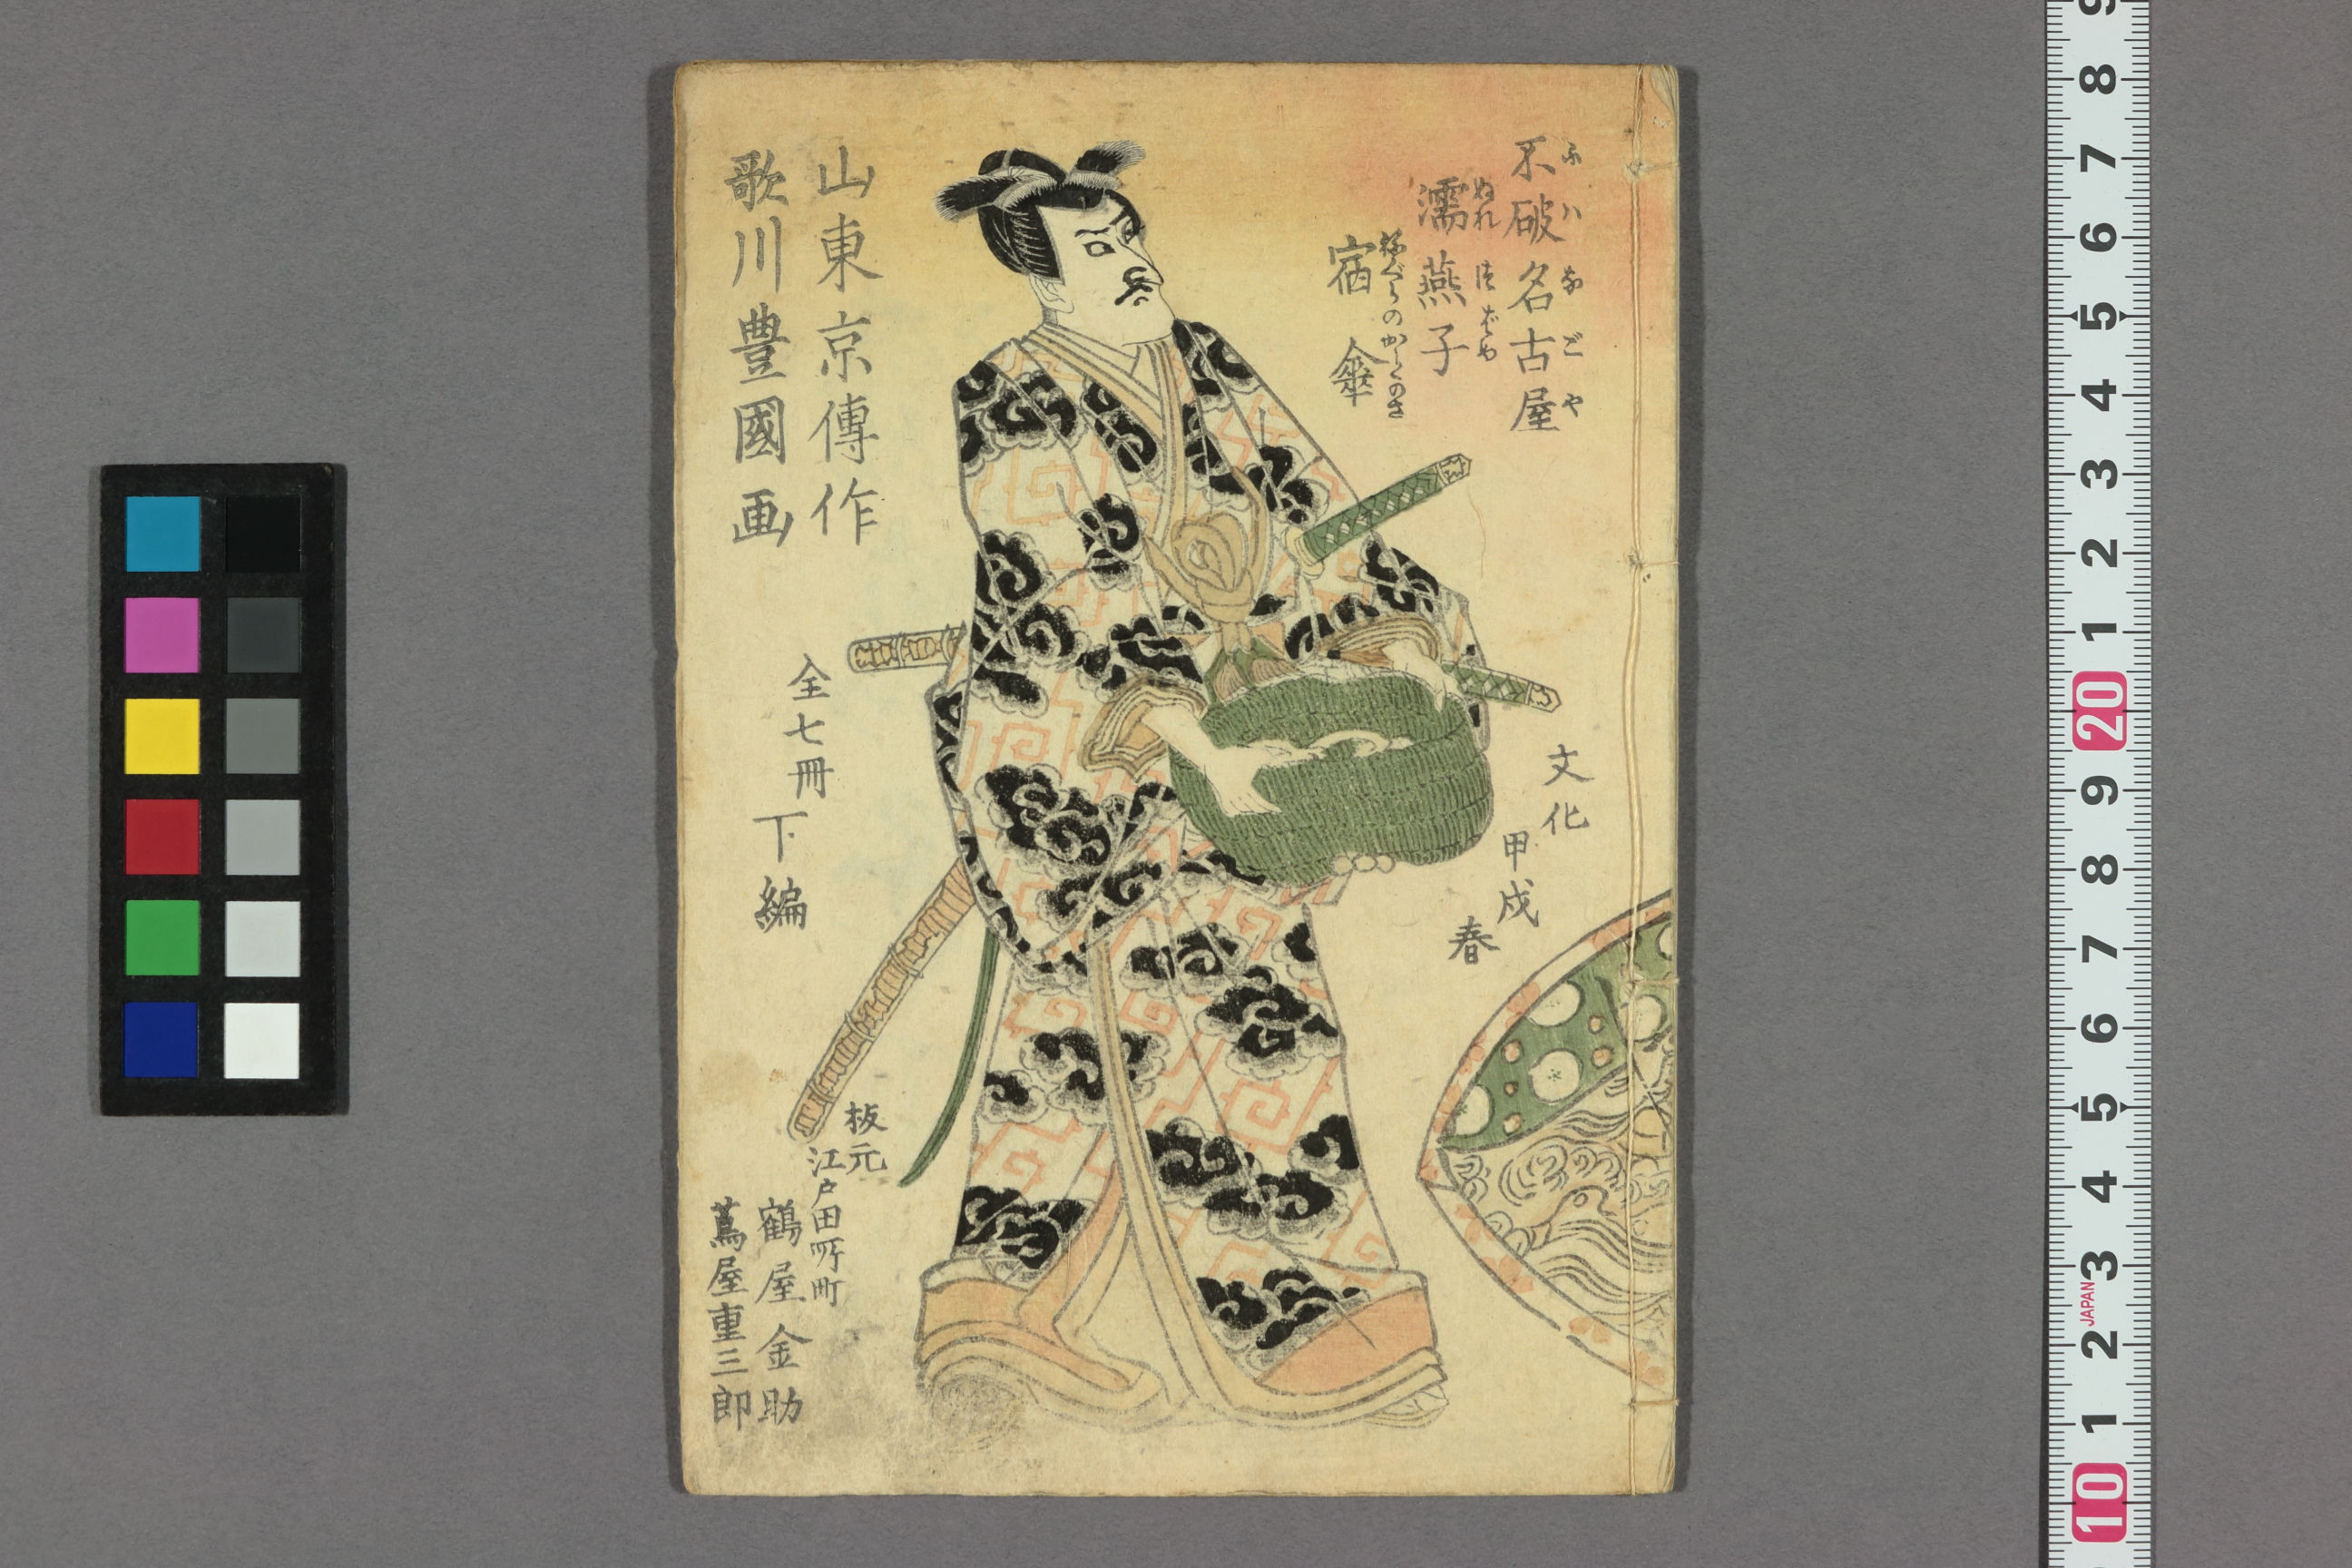 不破名古屋
ふハなごや
濡燕子
ぬれつばめ
宿傘
ねぐらのからかさ
文化
甲戌
春
山東京傳作
歌川豊國画
全七冊
下編
板元
江戸田所町
鶴屋金助
蔦屋重三郎
9
8
7
6
5
4
3
2
1
20
9
8
7
6
5
4
3
JAPAN
2
1
10